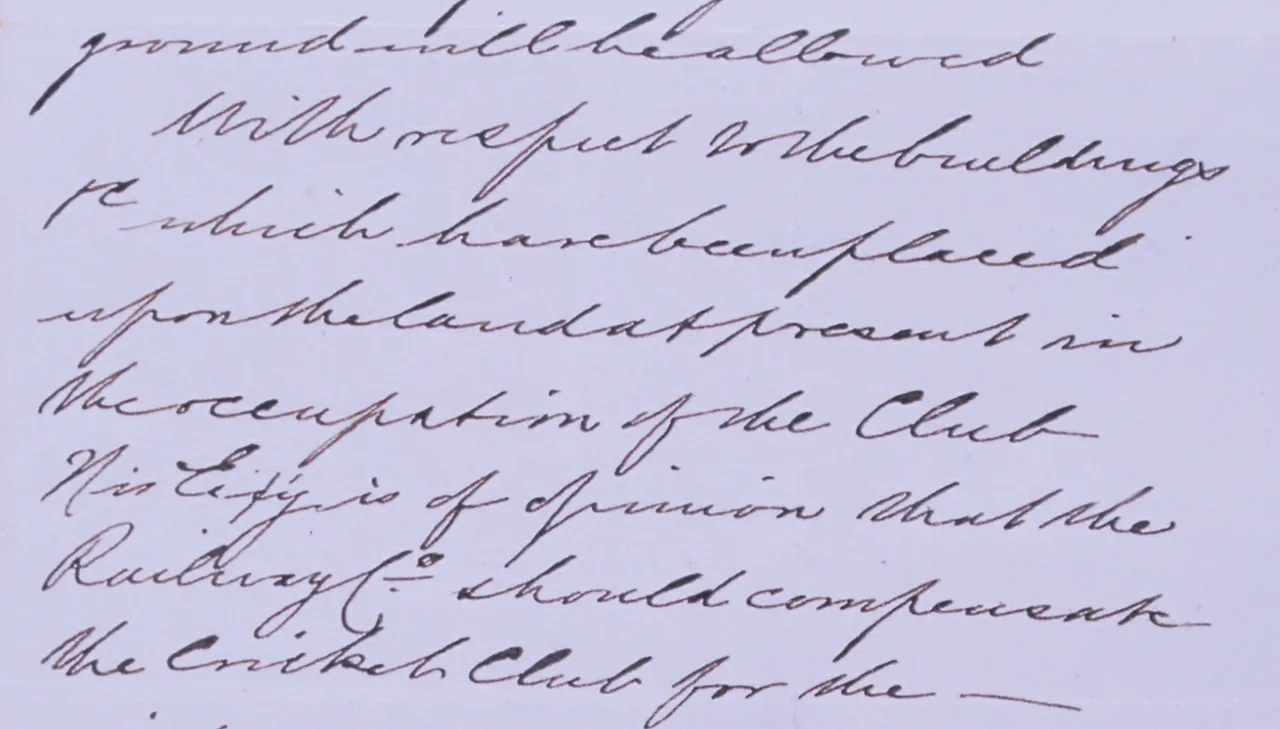 ground will be allowed
With respect to the buildings
&c which have been placed
upon the land at present in
the occupation of the Club
His Exȳ is of opinion that the
Railway Co. should compensate
the Cricket Club for the —